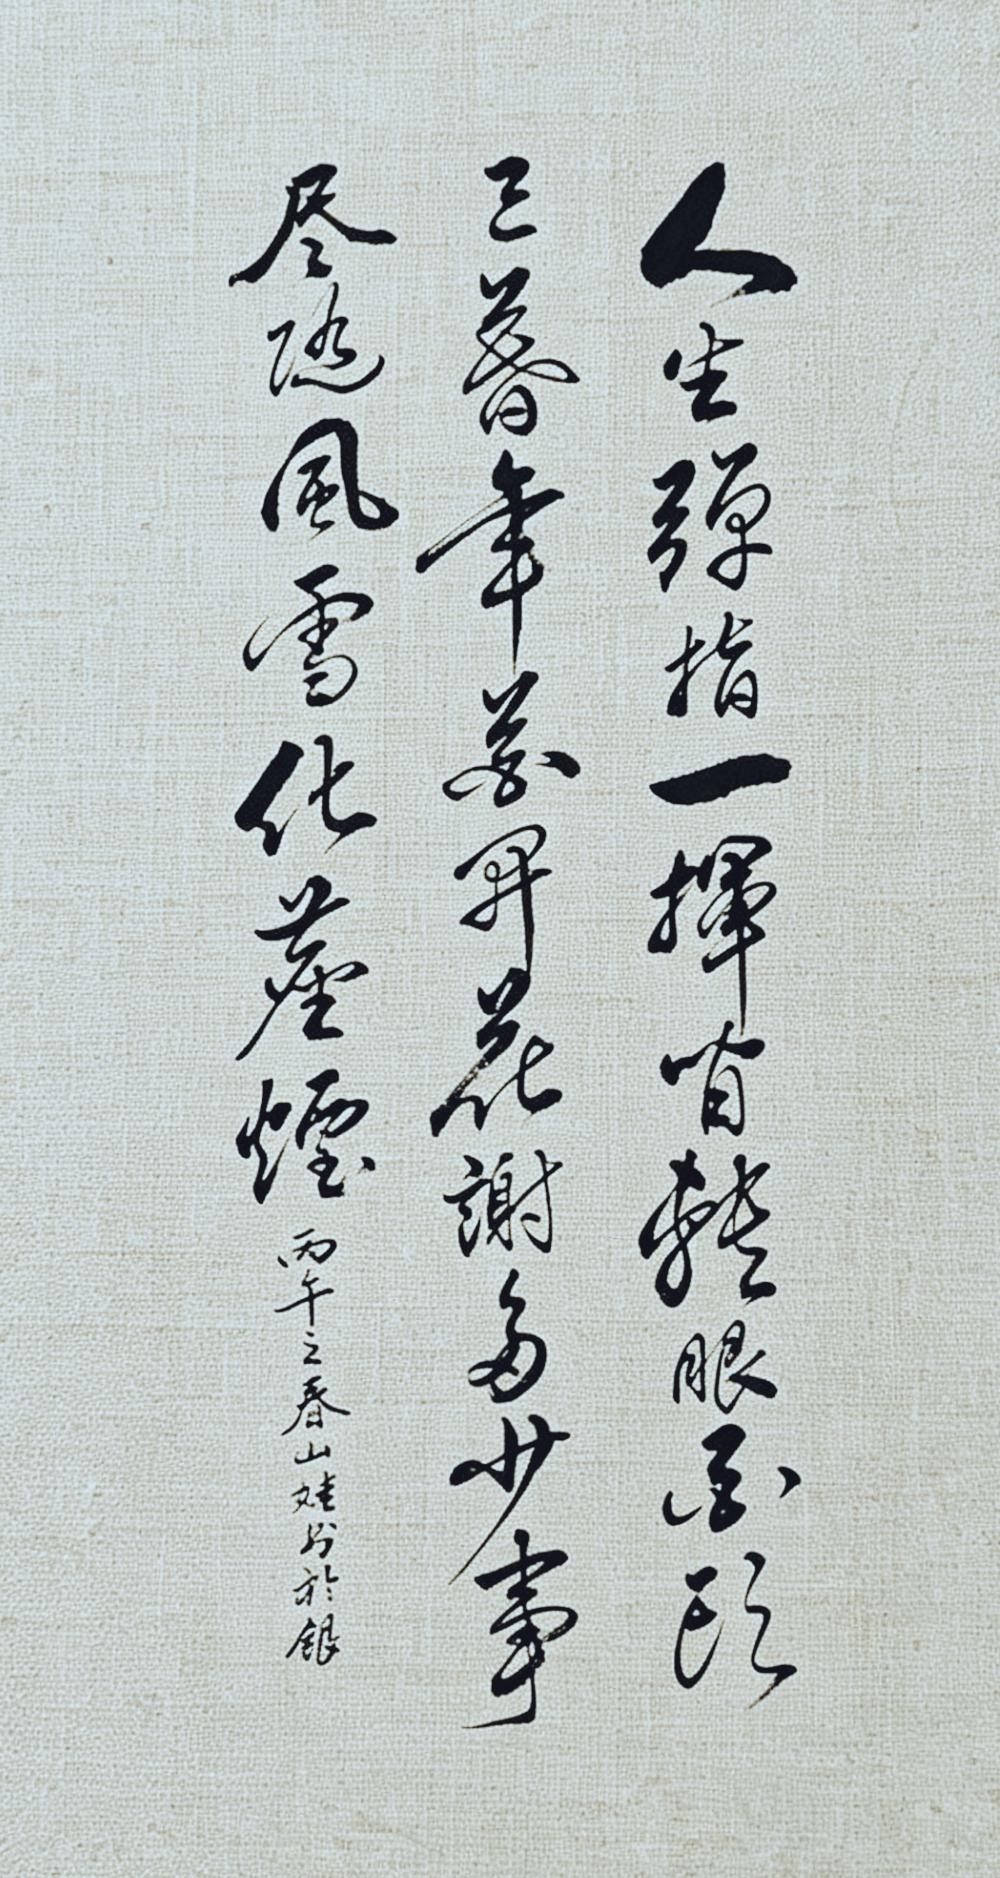 人生彈指一揮间轉眼回頭
已暮年花開花謝多少事
尽随風雪化塵煙
丙午之春山娃书於銀